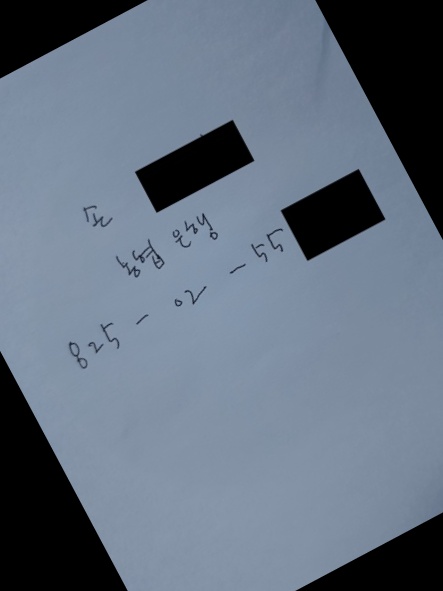 손
농협 은행
825 - 02 - 55